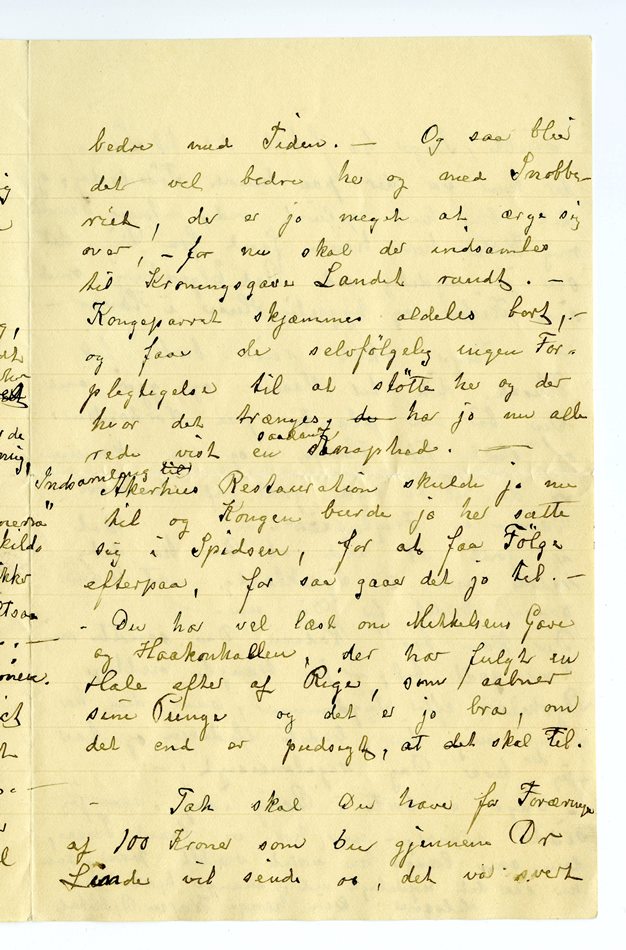 bedre med Tiden. — Og saa blir
det vel bedre he og med Snobbe-
riet, der er jo meget at ærge sig
over, – for nu skal der indsamles
til Kroningsgave Landet rundt. –
Kongeparret skjæmmes aldeles bort, –
og faar de selvfölgelig ingen For-
plegtigelse til at stötte he og der
hvor det trænges, de har jo nu alle
rede vist en saadan knaphed. —
Indsamling til
Akerhus Restauration skulde jo nu
til og Kongen burde jo her sætte
sig i Spidsen, for at faa Fölge
efterpaa, for saa gaaer det jo til. –
– Du har vel læst om Mikkelsens Gave
og Haakonhallen, der har fulgt en
Hale efter af Rige, som aabner
sine Punge og det er jo bra, om
det end er pudsigt, at det skal til.
– Tak skal Du have for Foræringen
af 100 Kroner som Du gjennem Dr
Linde vil sende os, det var svert